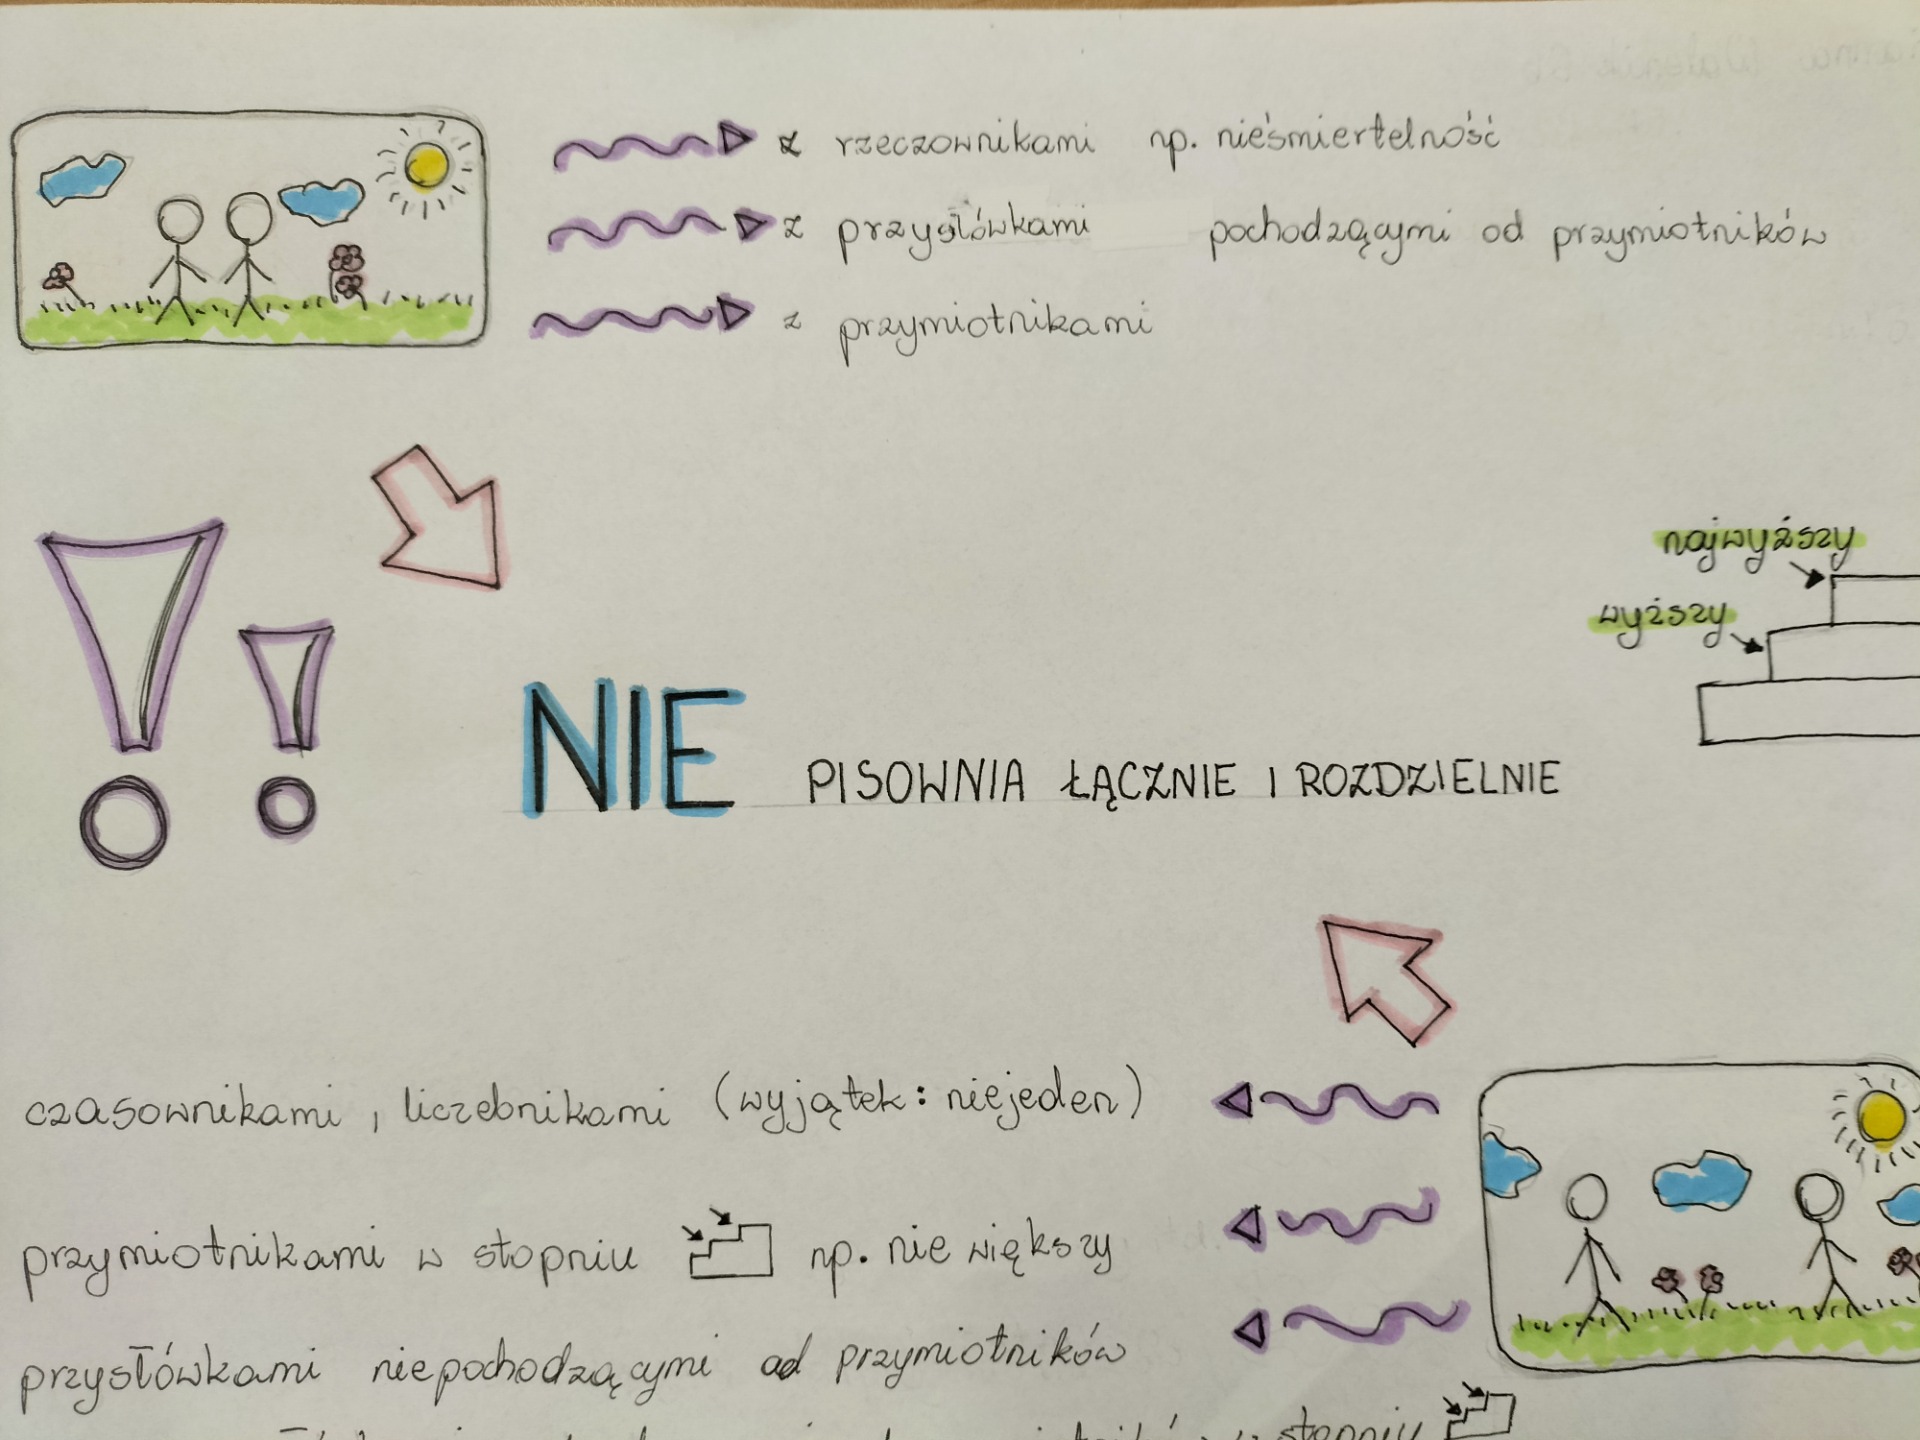 z rzeczownikami np. nieśmiertelność
z przysłówkami pochodzącymi od przymiotników
z przymiotnikami
najwyższy
wyższy
NIE PISOWNIA ŁĄCZNIE I ROZDZIELNIE
czasownikami, liczebnikami (wyjątek: niejeden)
przymiotnikami w stopniu np. nie większy
przysłówkami niepochodzącymi od przymiotników
w stopniu